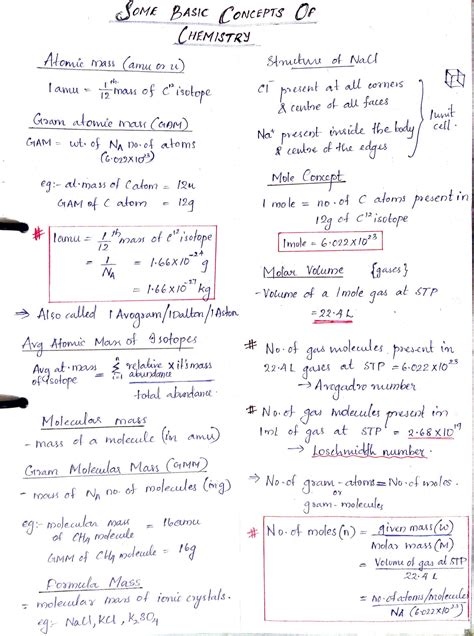 SOME BASIC CONCEPTS OF
CHEMISTRY
Atomic mass (amu or u)
1 amu = 1/12 th mass of C¹² isotope
Gram atomic mass (GAM)
GAM = wt. of NA no. of atoms
(6.022×10²³)
eg:- at. mass of C atom = 12u
GAM of C atom = 12g
# 1amu = 1/12 th mass of C¹² isotope
= 1/NA = 1.66×10⁻²⁴ g
= 1.66×10⁻²⁷ kg
⇒ Also called 1 Avogram/1Dalton/1Aston
Avg Atomic Mass of Isotopes
Avg at. mass of isotope = n Σ i=1 relative abundance × it's mass / total abundance
Molecular mass
- mass of a molecule (in amu)
Gram Molecular Mass (GMM)
- mass of NA no. of molecules (in g)
eg:- molecular mass of CH₄ molecule = 16amu
GMM of CH₄ molecule = 16g
Formula Mass
= molecular mass of ionic crystals.
eg:- NaCl, KCl, K₂SO₄
Structure of NaCl
Cl⁻ present at all corners
& centre of all faces
Na⁺ present inside the body
& centre of the edges
1 unit
cell.
Mole Concept
1 mole = no. of C atoms present in
12g of C¹² isotope
1mole = 6.022×10²³
Molar Volume {gases}
- Volume of a 1mole gas at STP
= 22.4 L
# No. of gas molecules present in
22.4 L gases at STP = 6.022×10²³
→ Avogadro number
# No. of gas molecules present in
1mL of gas at STP = 2.68×10¹⁹
→ Loschmidth number.
⇒ No. of gram-atoms = No. of moles.
or
gram-molecules
# No. of moles (n) = given mass (w) / Molar mass (M)
= Volume of gas at STP / 22.4 L
= no. of atoms/molecules / NA (6.022×10²³)